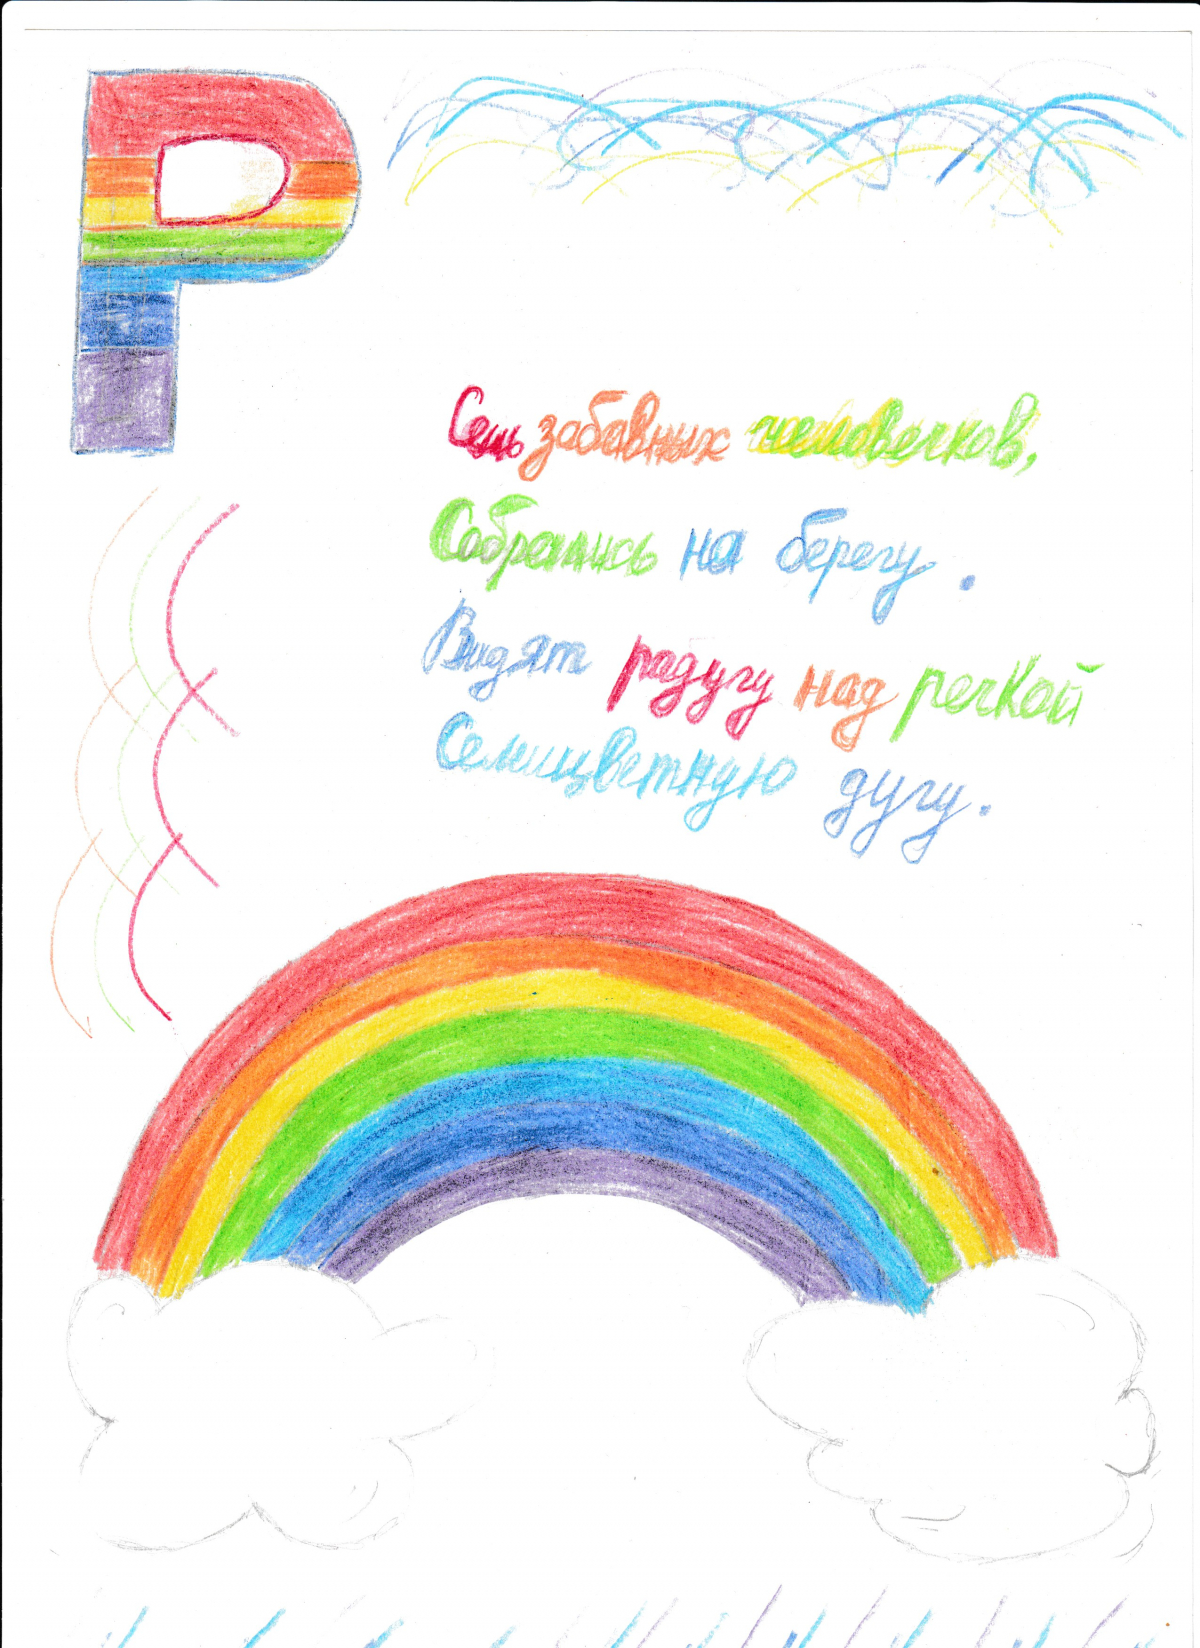 Р
Семь забавных человечков,
Собрались на берегу.
Видят радугу над речкой
Семицветную дугу.